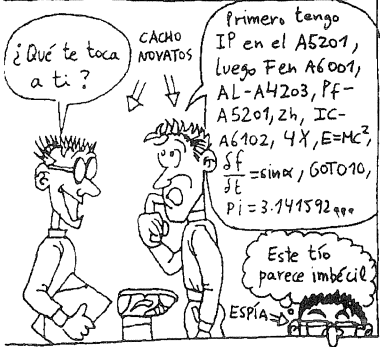 ¿Qué te toca
a ti?
CACHO
NOVATOS
Primero tengo
IP en el A5201,
luego F en A6001,
AL-A4203, Pf-
A5201, Zh, IC-
A6102, 4X, E=MC²,
δf/δt = sinα, GOTO10,
Pi=3.141592...
Este tío
parece imbécil
ESPÍA